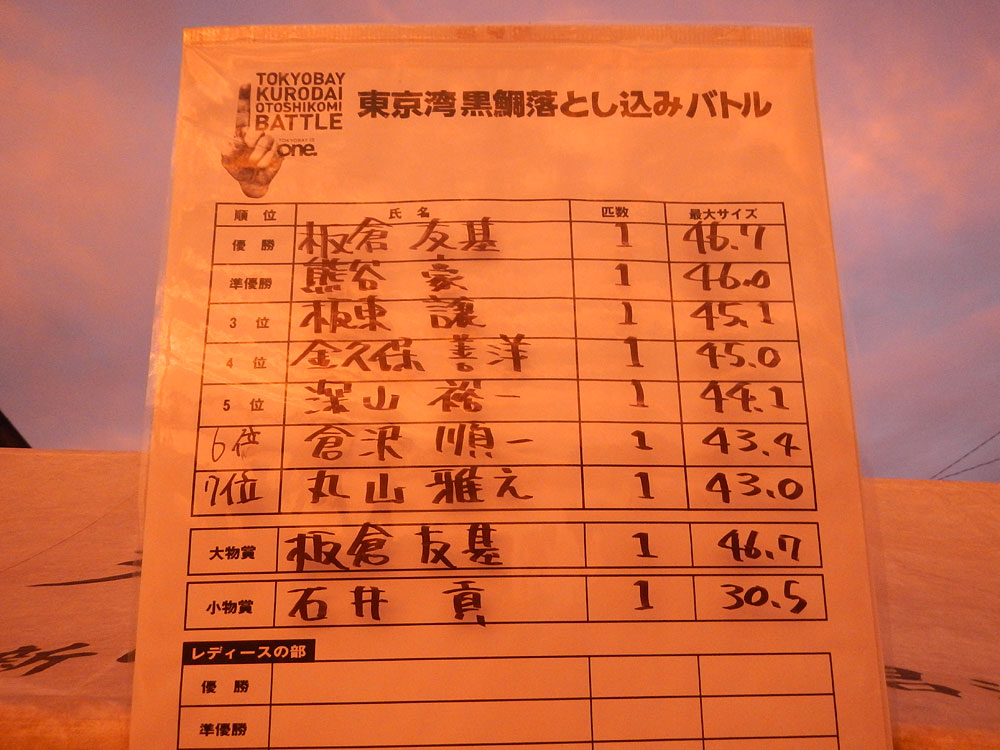 TOKYOBAY
KURODAI
OTOSHIKOMI
BATTLE
TOKYOBAY IS
one.
東京湾黒鯛落とし込みバトル
順位 氏名 匹数 最大サイズ
優勝 板倉 友基 1 46.7
準優勝 熊谷 豪 1 46.0
3位 板東 譲 1 45.1
4位 金久保 善洋 1 45.0
5位 深山 裕一 1 44.1
6位 倉沢 順一 1 43.4
7位 丸山 雅え 1 43.0
大物賞 板倉 友基 1 46.7
小物賞 石井 貢 1 30.5
レディースの部
優勝
準優勝
新